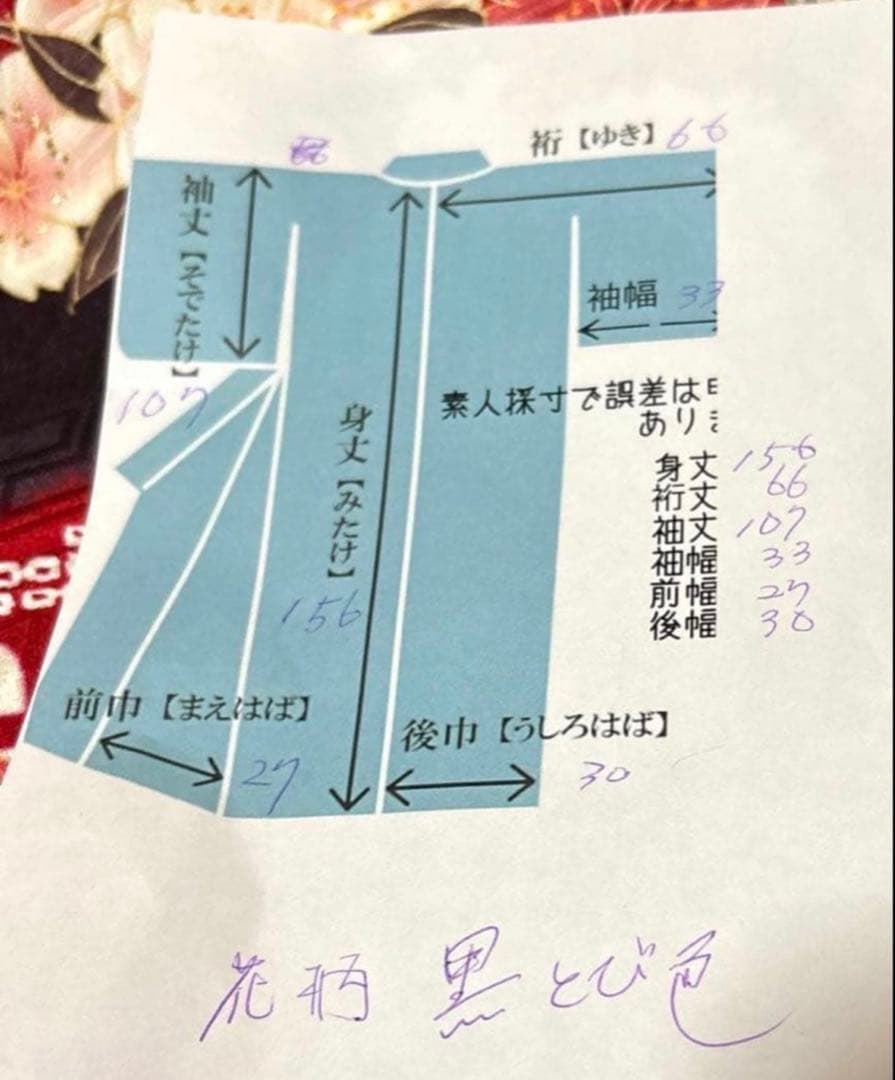 裄【ゆき】66
袖丈【そでたけ】
107
袖幅 33
素人採寸で誤差は
あり
身丈【みたけ】
156
身丈 156
裄丈 66
袖丈 107
袖幅 33
前幅 27
後幅 30
前巾【まえはば】
27
後巾【うしろはば】
30
花柄 黒とび色